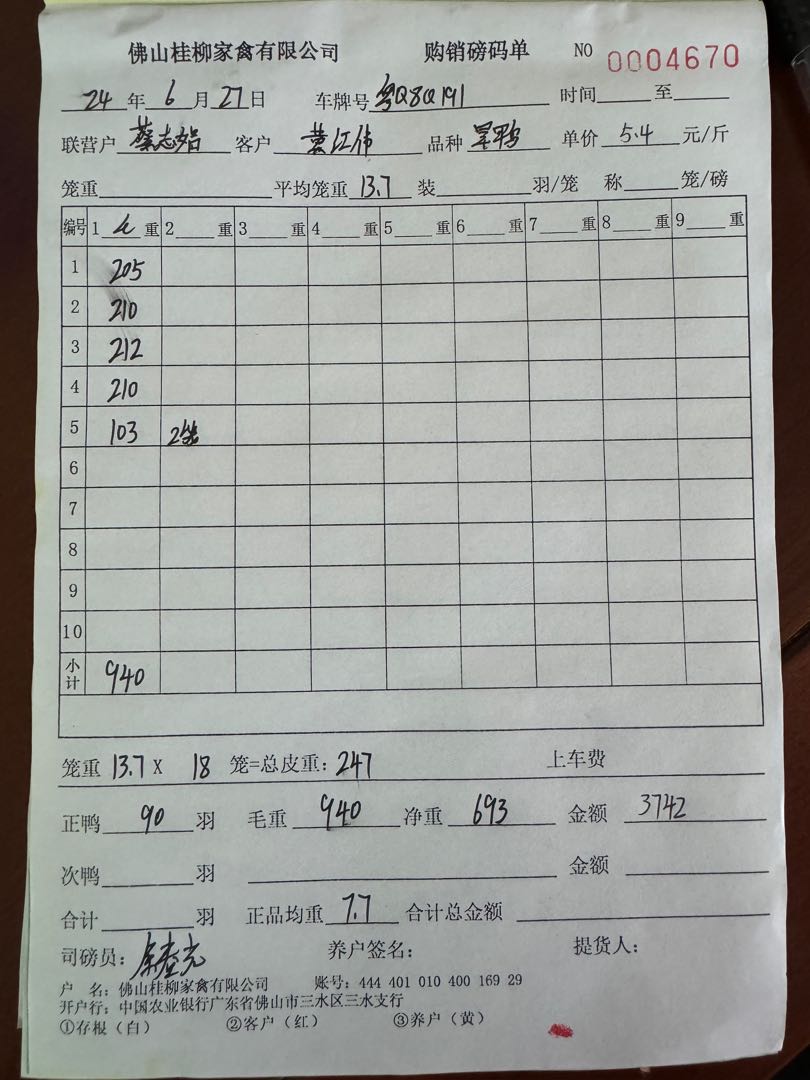 佛山桂柳家禽有限公司 购销磅码单 NO 0004670
24 年 6 月 27 日 车牌号 粤Q8Q191 时间 至
联营户 蔡志 客户 黄江伟 品种 单价 5.4 元/斤
笼重 平均笼重 13.7 装 羽/笼 称 笼/磅
编号 1 4 重 2 重 3 重 4 重 5 重 6 重 7 重 8 重 9 重
1 205
2 210
3 212
4 210
5 103 2
6
7
8
9
10
小计 940
笼重 13.7 X 18 笼=总皮重: 247 上车费
正鸭 90 羽 毛重 940 净重 693 金额 3742
次鸭 羽 金额
合计 羽 正品均重 7.7 合计总金额
司磅员: 养户签名: 提货人:
户 名: 佛山桂柳家禽有限公司 账号: 444 401 010 400 169 29
开户行: 中国农业银行广东省佛山市三水区三水支行
①存根(白) ②客户(红) ③养户(黄)